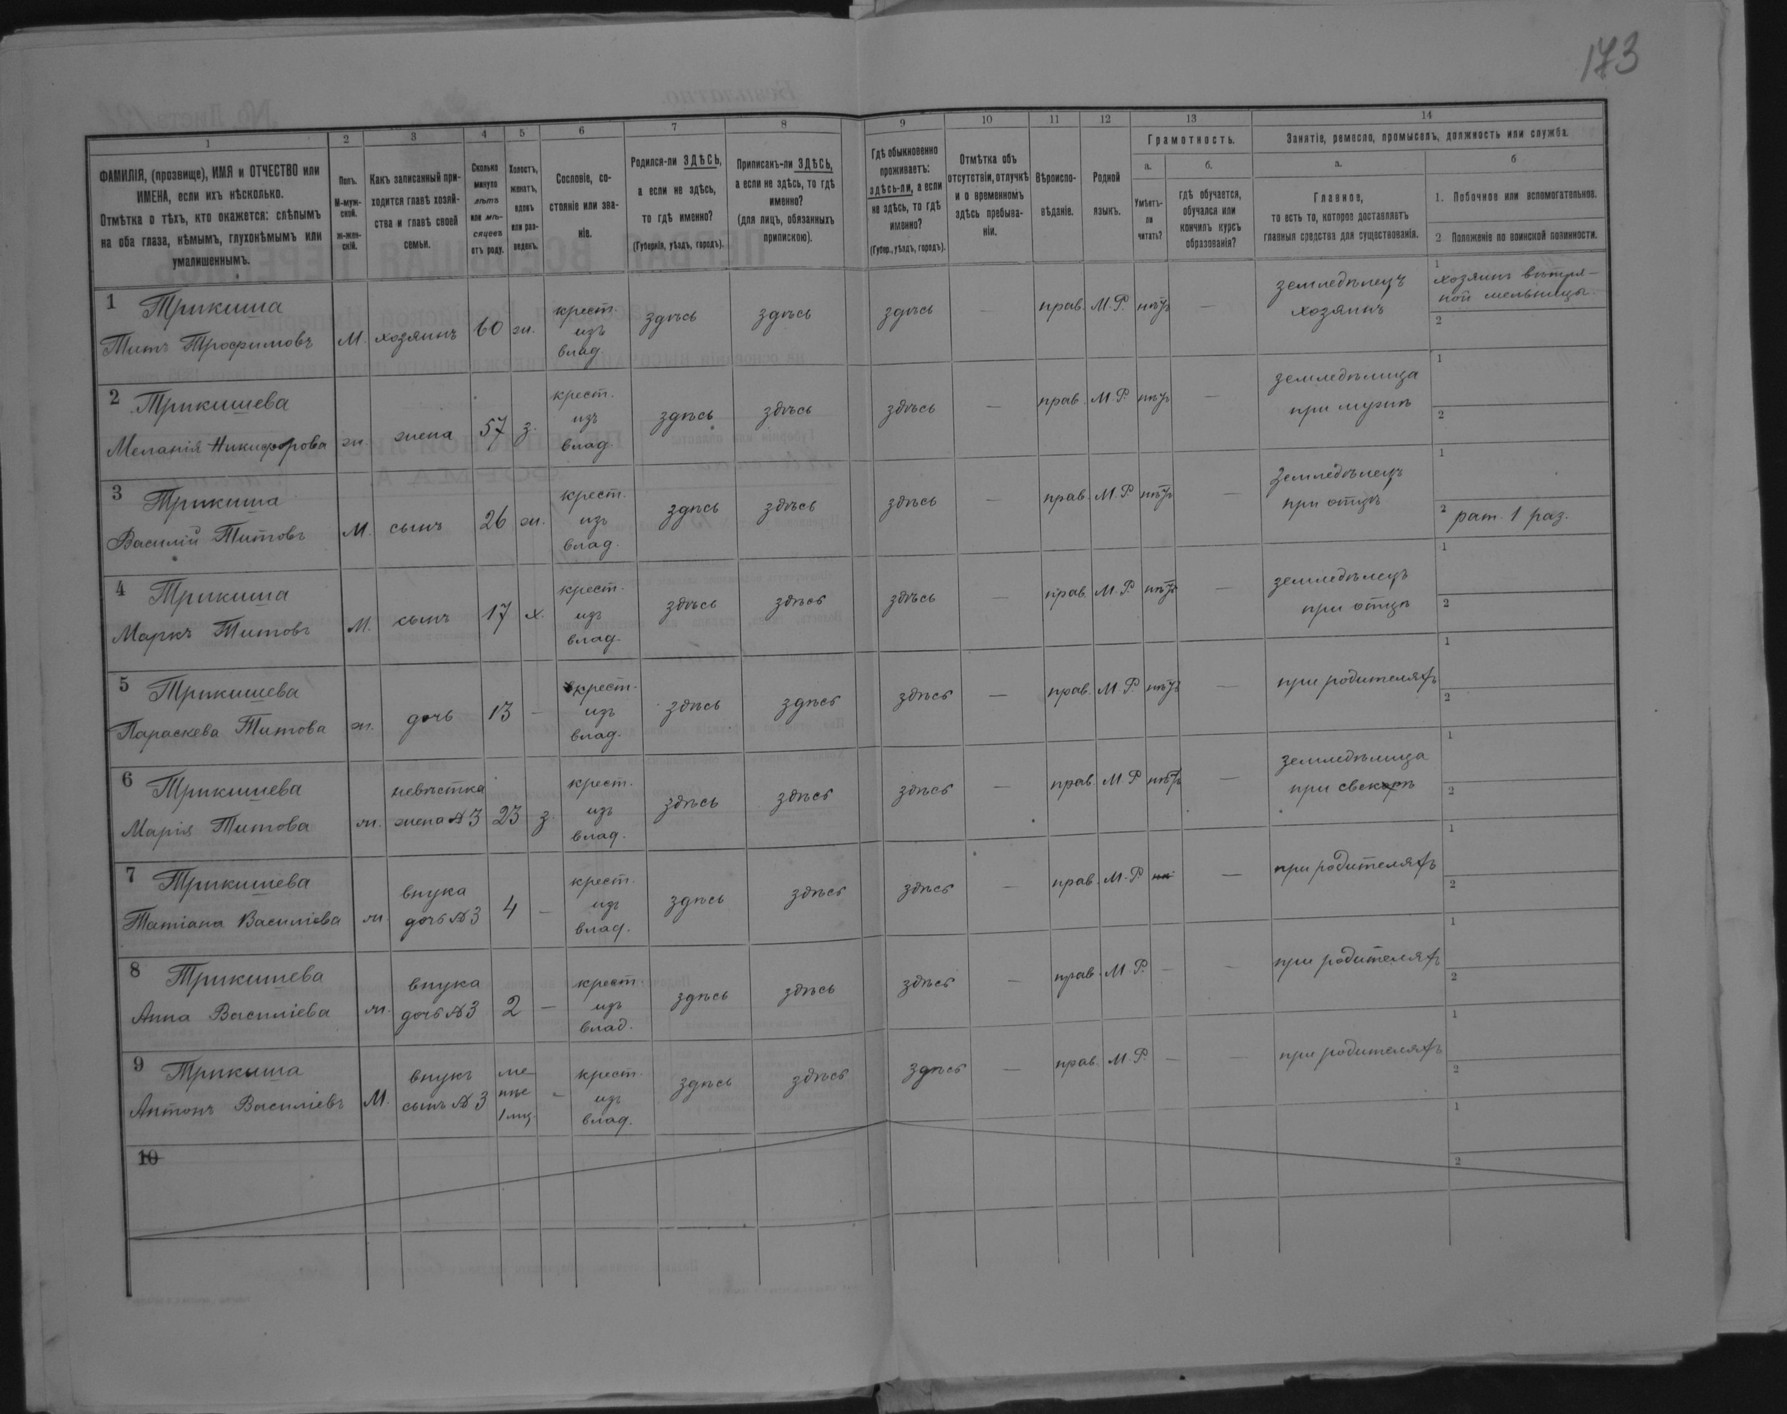 173
1
2
3
4
5
6
7
8
9
10
11
12
13
14
ФАМИЛІЯ, (прозвище), ИМЯ и ОТЧЕСТВО или ИМЕНА, если ихъ нѣсколько.
Отмѣтка о тѣхъ, кто окажется: слѣпымъ на оба глаза, нѣмымъ, глухонѣмымъ или умалишеннымъ.
Полъ. М-мужской. Ж-женскій.
Какъ записанный приходится главѣ хозяйства и главѣ своей семьи.
Сколько минуло лѣтъ или мѣсяцевъ отъ роду.
Холостъ, женатъ, вдовъ или разведенъ.
Сословіе, состояніе или званіе.
Родился-ли ЗДѢСЬ, а если не здѣсь, то гдѣ именно? (Губернія, уѣздъ, городъ).
Приписанъ-ли ЗДѢСЬ, а если не здѣсь, то гдѣ именно? (для лицъ, обязанныхъ припискою).
Гдѣ обыкновенно проживаетъ: здѣсь-ли, а если не здѣсь, то гдѣ именно? (Губер., уѣздъ, городъ).
Отмѣтка объ отсутствіи, отлучкѣ и о временномъ здѣсь пребываніи.
Вѣроисповѣданіе.
Родной языкъ.
Грамотность.
а.
Умѣетъ-ли читать?
б.
Гдѣ обучается, обучался или кончилъ курсъ образованія?
Занятіе, ремесло, промыселъ, должность или служба.
а.
Главное, то есть то, которое доставляетъ главныя средства для существованія.
б
1. Побочное или вспомогательное.
2 Положеніе по воинской повинности.
1 Трикиша
Титъ Трофимовъ М. хозяинъ 60 ж. крест. изъ влад. здѣсь здѣсь здѣсь — прав. М.Р. нѣтъ — земледѣлецъ хозяинъ 1 хозяинъ вѣтряной мельницы 2
2 Трикишева
Меланія Никифорова ж. жена 57 з. крест. изъ влад. здѣсь здѣсь здѣсь — прав. М.Р. нѣтъ — земледѣлица при мужѣ 1 2
3 Трикиша
Василій Титовъ М. сынъ 26 ж. крест. изъ влад. здѣсь здѣсь здѣсь — прав. М.Р. нѣтъ — земледѣлецъ при отцѣ 1 2 рат. 1 раз.
4 Трикиша
Маркъ Титовъ М. сынъ 17 х. крест. изъ влад. здѣсь здѣсь здѣсь — прав. М.Р. нѣтъ — земледѣлецъ при отцѣ 1 2
5 Трикишева
Параскева Титова ж. дочь 13 — крест. изъ влад. здѣсь здѣсь здѣсь — прав. М.Р. нѣтъ — при родителяхъ 1 2
6 Трикишева
Марія Титова ж. невѣстка жена №3 23 з. крест. изъ влад. здѣсь здѣсь здѣсь — прав. М.Р. нѣтъ — земледѣлица при свекрѣ 1 2
7 Трикишева
Татіана Василіева ж. внука дочь №3 4 — крест. изъ влад. здѣсь здѣсь здѣсь — прав. М.Р. — при родителяхъ 1 2
8 Трикишева
Анна Василіева ж. внука дочь №3 2 — крест. изъ влад. здѣсь здѣсь здѣсь — прав. М.Р. — — при родителяхъ 1 2
9 Трикиша
Антонъ Василіевъ М. внукъ сынъ №3 менѣе 1 мц. — крест. изъ влад. здѣсь здѣсь здѣсь — прав. М.Р. — — при родителяхъ 1 2
10 1 2